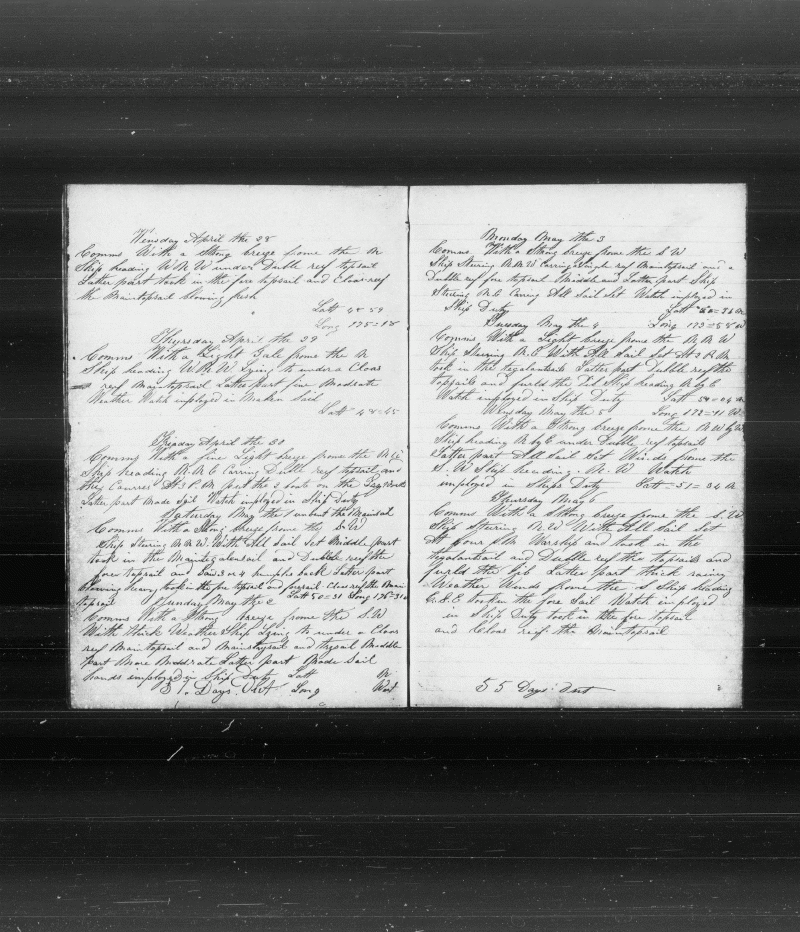 Wensday April the 28
Comms With a Strong breeze frome the N
Ship heading W N W under Dubble reef topsail
Latter part took in the fore topsail and Cloas reef
the Maintopsail blowing fresh
Latt 48=59
Long 175=18
Thursday April the 29
Comms With a Light Gale frome the N
Ship heading W N W Lying to under a Cloas
reef Maintopsail Latter part fine Modrate
Weather Watch imployed in Makin Sail
Latt 48=45
Friday April the 30
Comms With a fine Light breeze from the
Ship heading N N E Carring Dubble reef topsail and
they Courses At 3 P M part the 2 boats on the
Latter part Made Sail Watch imployed in Ship Duty
Saturday May the 1 unbent the Mainsail
Comms With a Strong breeze frome the S W
Ship Stering N N W With All Sail Set Middle part
took in the Maintegalensail and Dubble reef the
fore topsail and Saw 3 or 4 humpbs back Latter part
blowing heavy took in the fore topsail and Cloas reef the Main
topsail Latt 50=31 Long 176=31
Sunday May the 2
Comms With a Strong breeze frome the S.W
With thick Weather Ship Lying to under a Cloas
reef Maintopsail and Mainstaysail and trysail Middle
part More Moddrate Latter part Made Sail
hands employed in Ship Duty Latt N
51 Days Out Long West
Monday May the 3
Comms With a Strong breeze frome the S W
Ship Stering N N W Carring Single reef Maintopsail and a
Dubble reef fore topsail Middle and Latter part Ship
Stering N E Carring All Sail Set Watch imployed in
Ship Duty Latt 50=36 N
Tuesday May the 4 Long 173=58 W
Comms With a Light breeze frome the N N W
Ship Stering N.E With All Sail Set At 3 P M
took in the tegalantsails Latter part Dubble reef the
topsails and furld the Jib Ship heading N by E
Watch imployed in Ship Duty Latt 51=04 N
Wensday May the 5 Long 172=41 W
Comms With a Strong breeze frome the N W by W
Ship heading N by E under Dubble reef topsails
Latter part All Sail Set Winds frome the
S. W Ship heading N. W Watch
imployed in Ships Duty Latt=51=34 N
Thursday May 6
Comms With a Strong breeze frome the S. W
Ship Stering N W With All Sail Set
At four P.M Worship and took in the
tegalantsail and Dubble reef the topsails and
furld the Jib Latter part thick rainy
Weather Winds frome the Ship heading
E.S.E took in the fore Sail Watch imployed
in Ship Duty took in the fore topsail
and Cloas reef the Maintopsail
55 Days Out